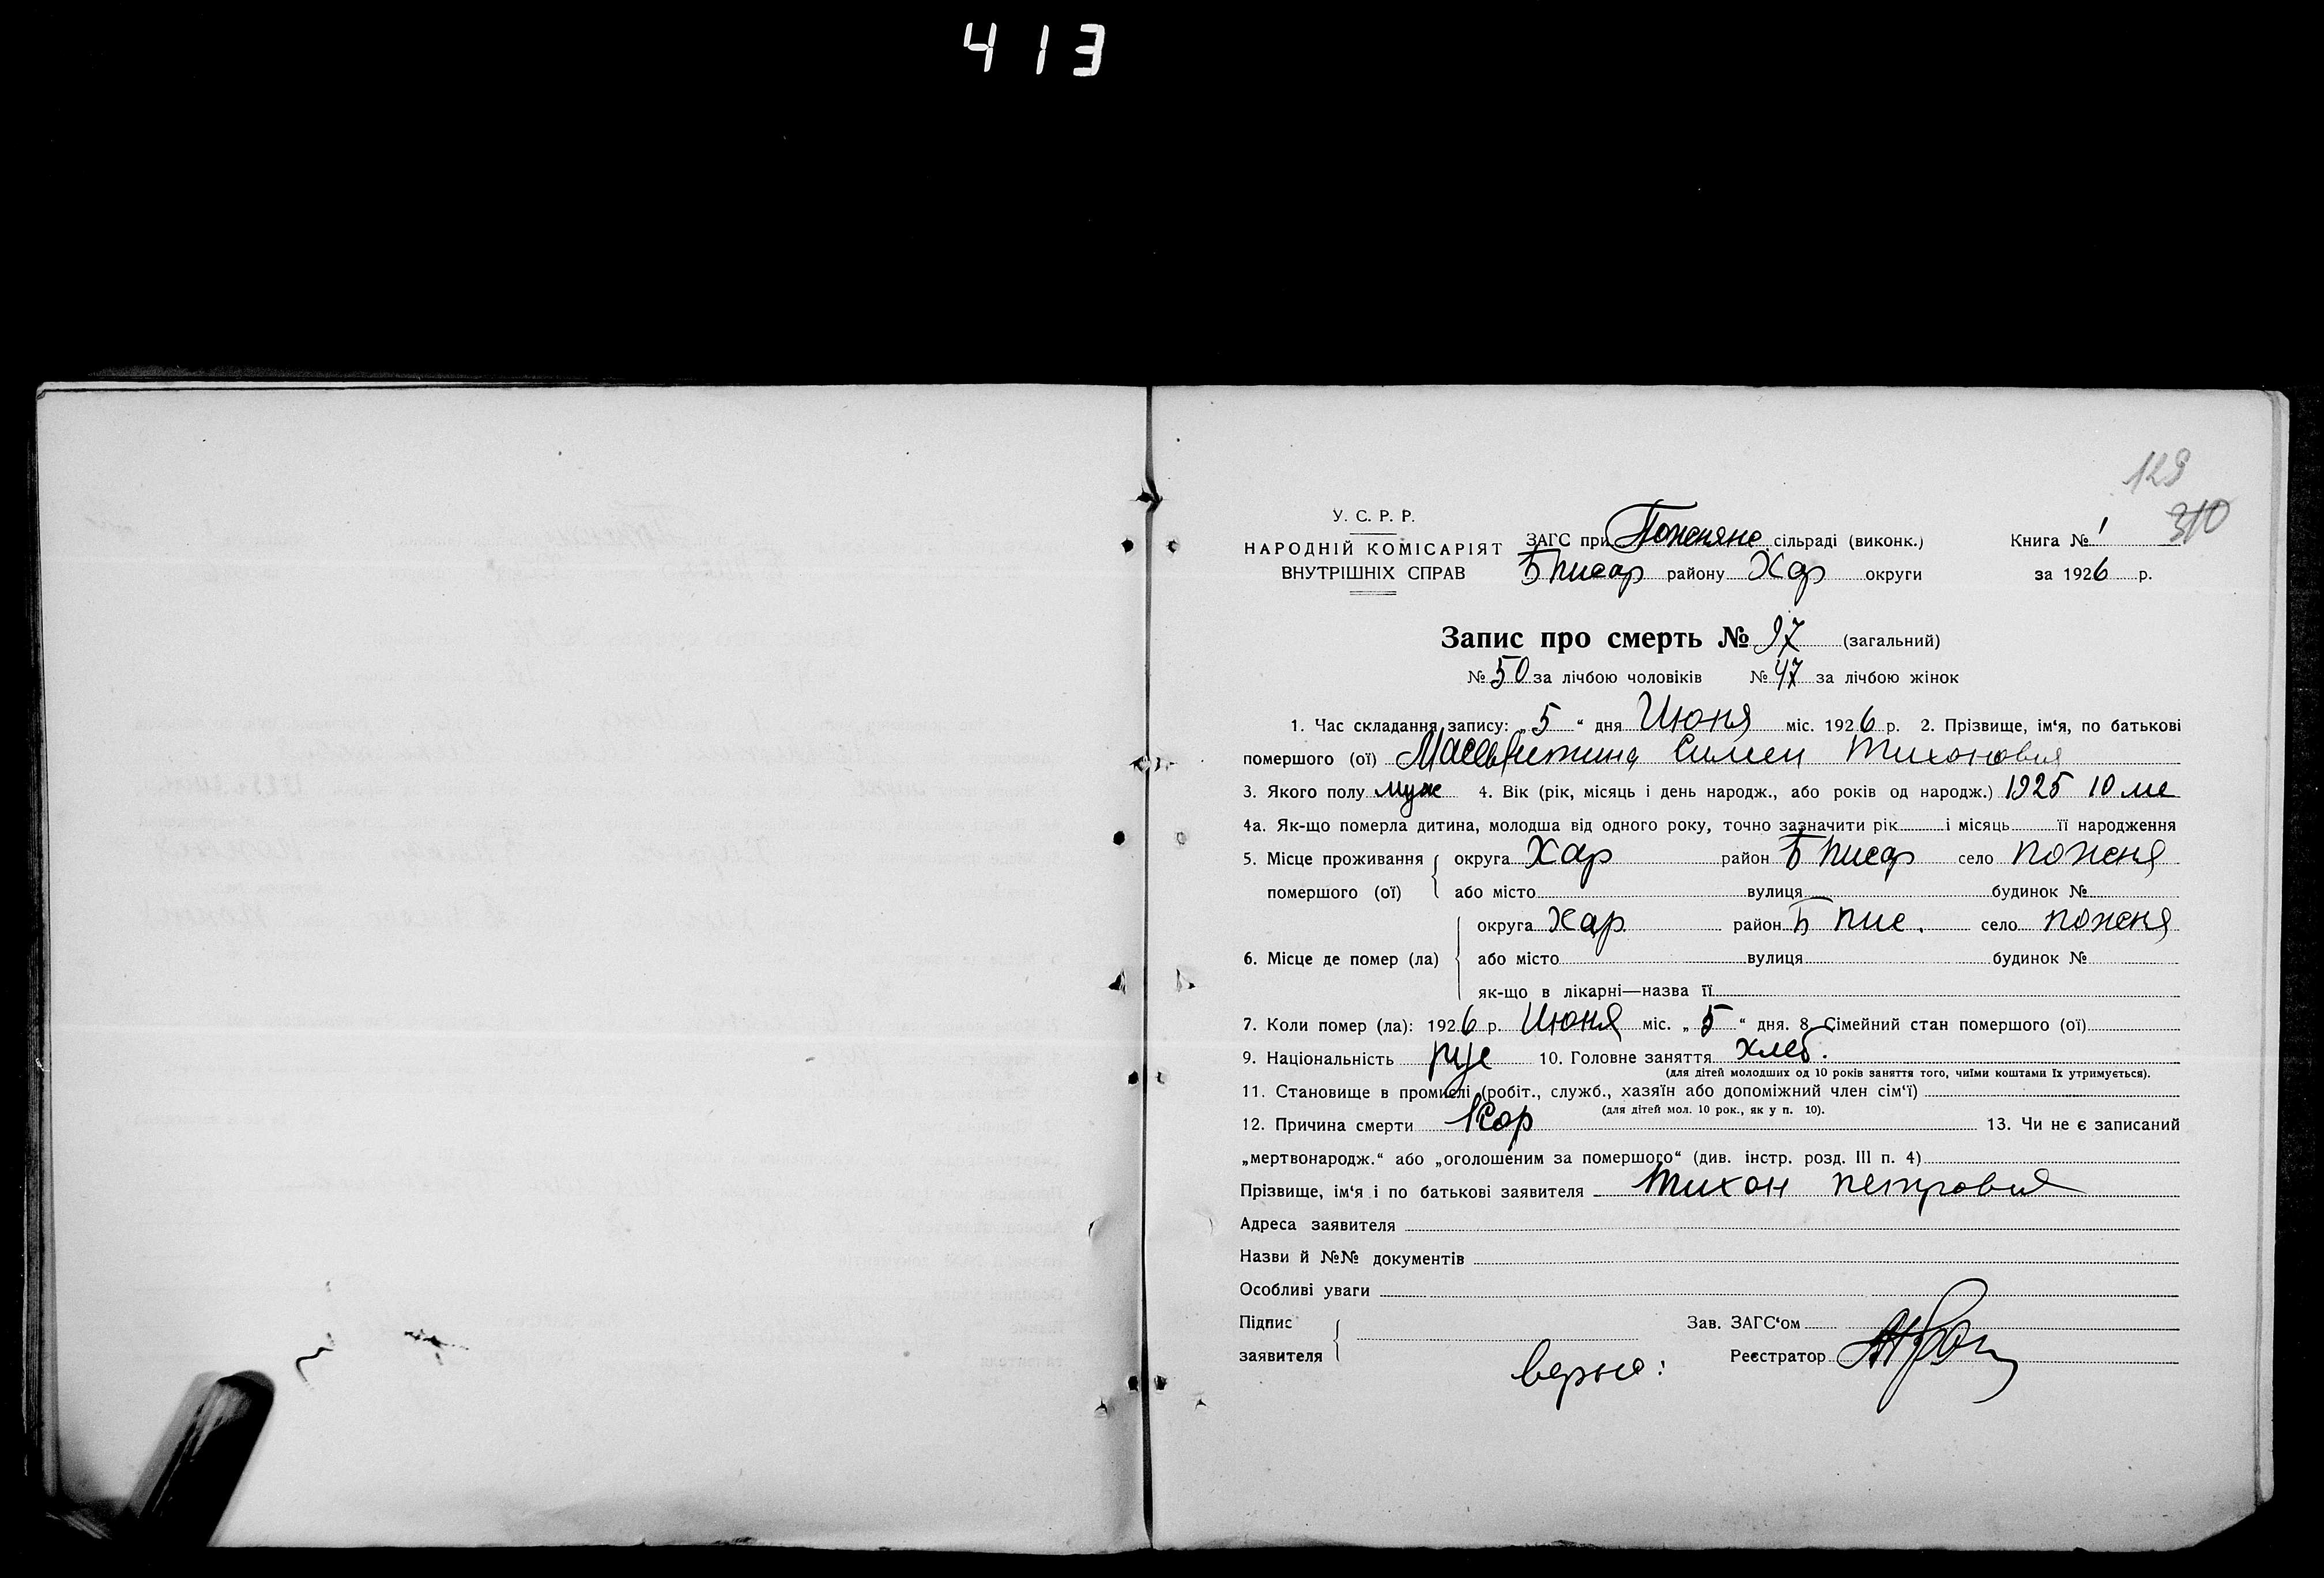 413
129
310
У. С. Р. Р.
НАРОДНІЙ КОМІСАРІЯТ
ВНУТРІШНІХ СПРАВ
ЗАГС при Поженяно сільраді (виконк.)
Б Писар району Хар округи
Книга № 1
за 1926 р.
Запис про смерть № 97 (загальний)
№ 50 за лічбою чоловіків № 47 за лічбою жінок
1. Час складання запису: „5“ дня Июня міс. 1926 р. 2. Прізвище, ім‘я, по батькові
помершого (ої) Симен Тихонович
3. Якого полу муж 4. Вік (рік, місяць і день народж., або років од народж.) 1925 10 ме
4а. Як-що померла дитина, молодша від одного року, точно зазначити рік і місяць її народження
5. Місце проживання помершого (ої) округа Хар район Б Писар село Поженя
або місто вулиця будинок №
6. Місце де помер (ла) округа Хар. район Б пис. село поженя
або місто вулиця будинок №
як-що в лікарні—назва її
7. Коли помер (ла): 1926 р. Июня міс. „5“ дня. 8. Сімейний стан помершого (ої)
9. Національність рус 10. Головне заняття хлеб.
(для дітей молодших од 10 років заняття того, чиїми коштами їх утримується).
11. Становище в промислі (робіт., служб., хазяїн або допоміжний член сім‘ї)
(для дітей мол. 10 рок., як у п. 10).
12. Причина смерти Кор 13. Чи не є записаний
„мертвонародж.“ або „оголошеним за помершого“ (див. інстр. розд. III п. 4)
Прізвище, ім‘я і по батькові заявителя Тихон петрович
Адреса заявителя
Назви й №№ документів
Особливі уваги
Підпис заявителя
Зав. ЗАГС‘ом
Реєстратор
верно: